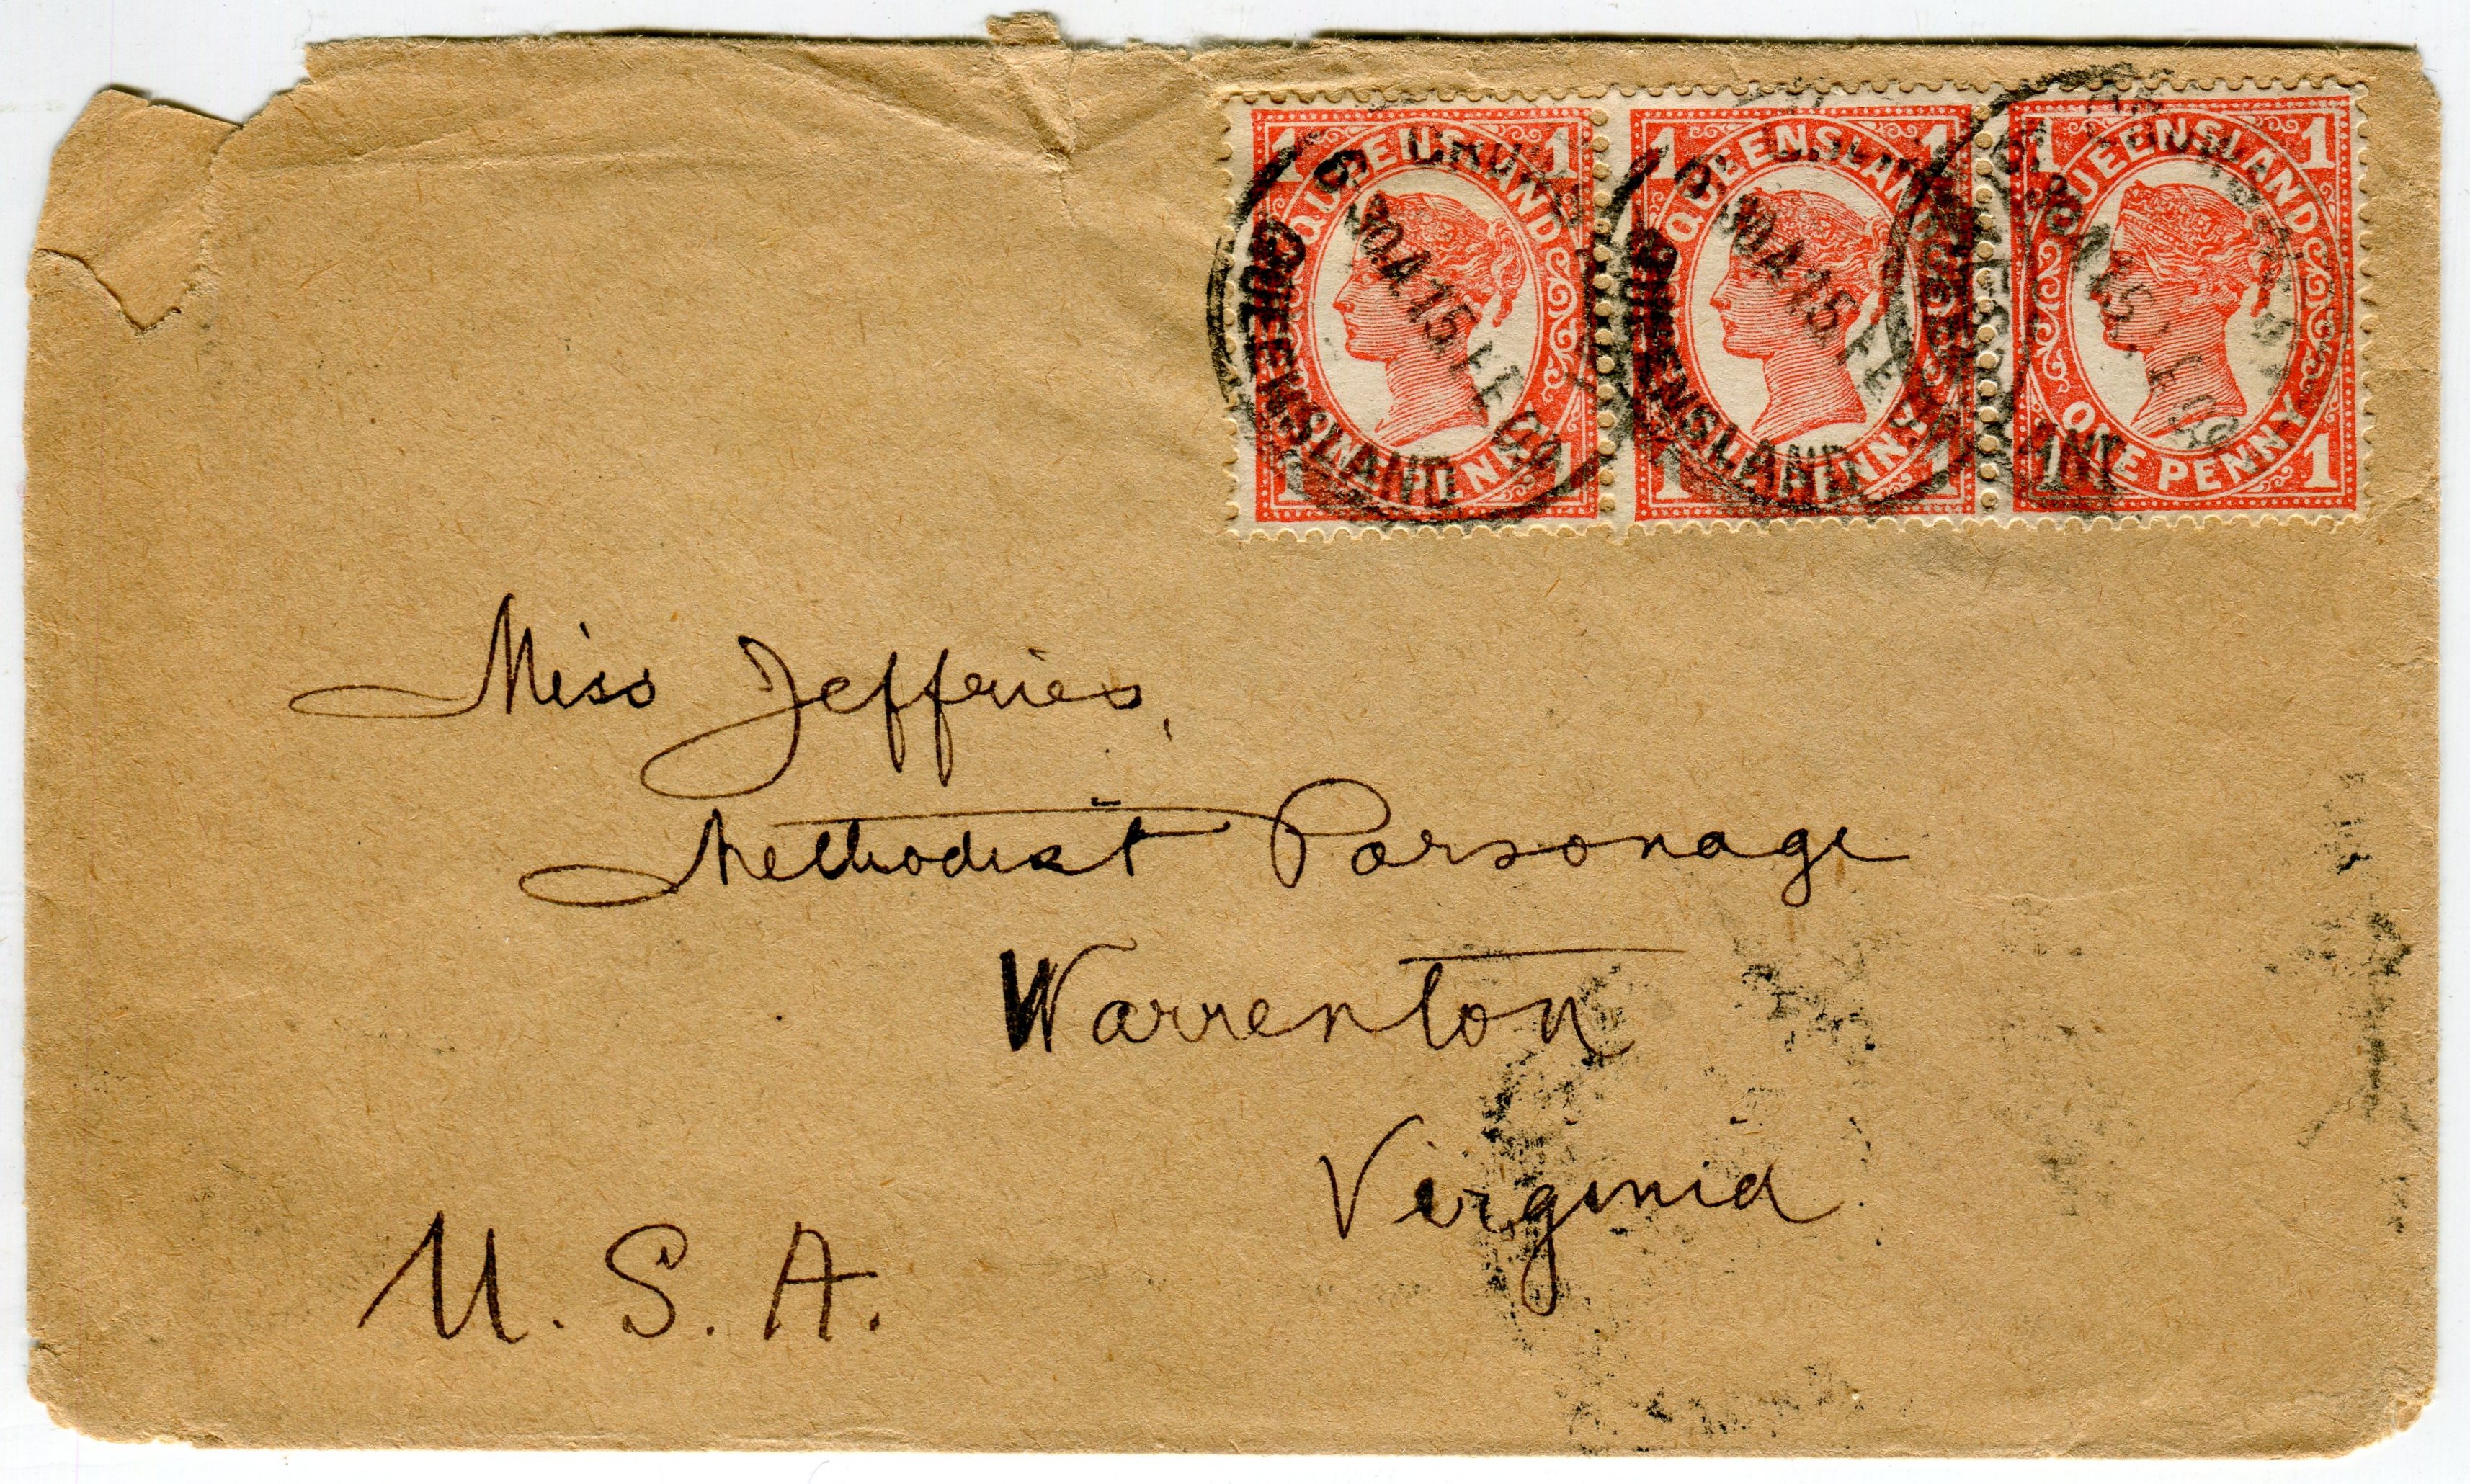 1 QUEENSLAND 1
ONE PENNY
1 QUEENSLAND 1
ONE PENNY
1 QUEENSLAND 1
ONE PENNY 1
QUEENSLAND
QUEENSLAND
Miss Jeffries,
Methodist Parsonage
Warrenton
Virginia
U. S. A.